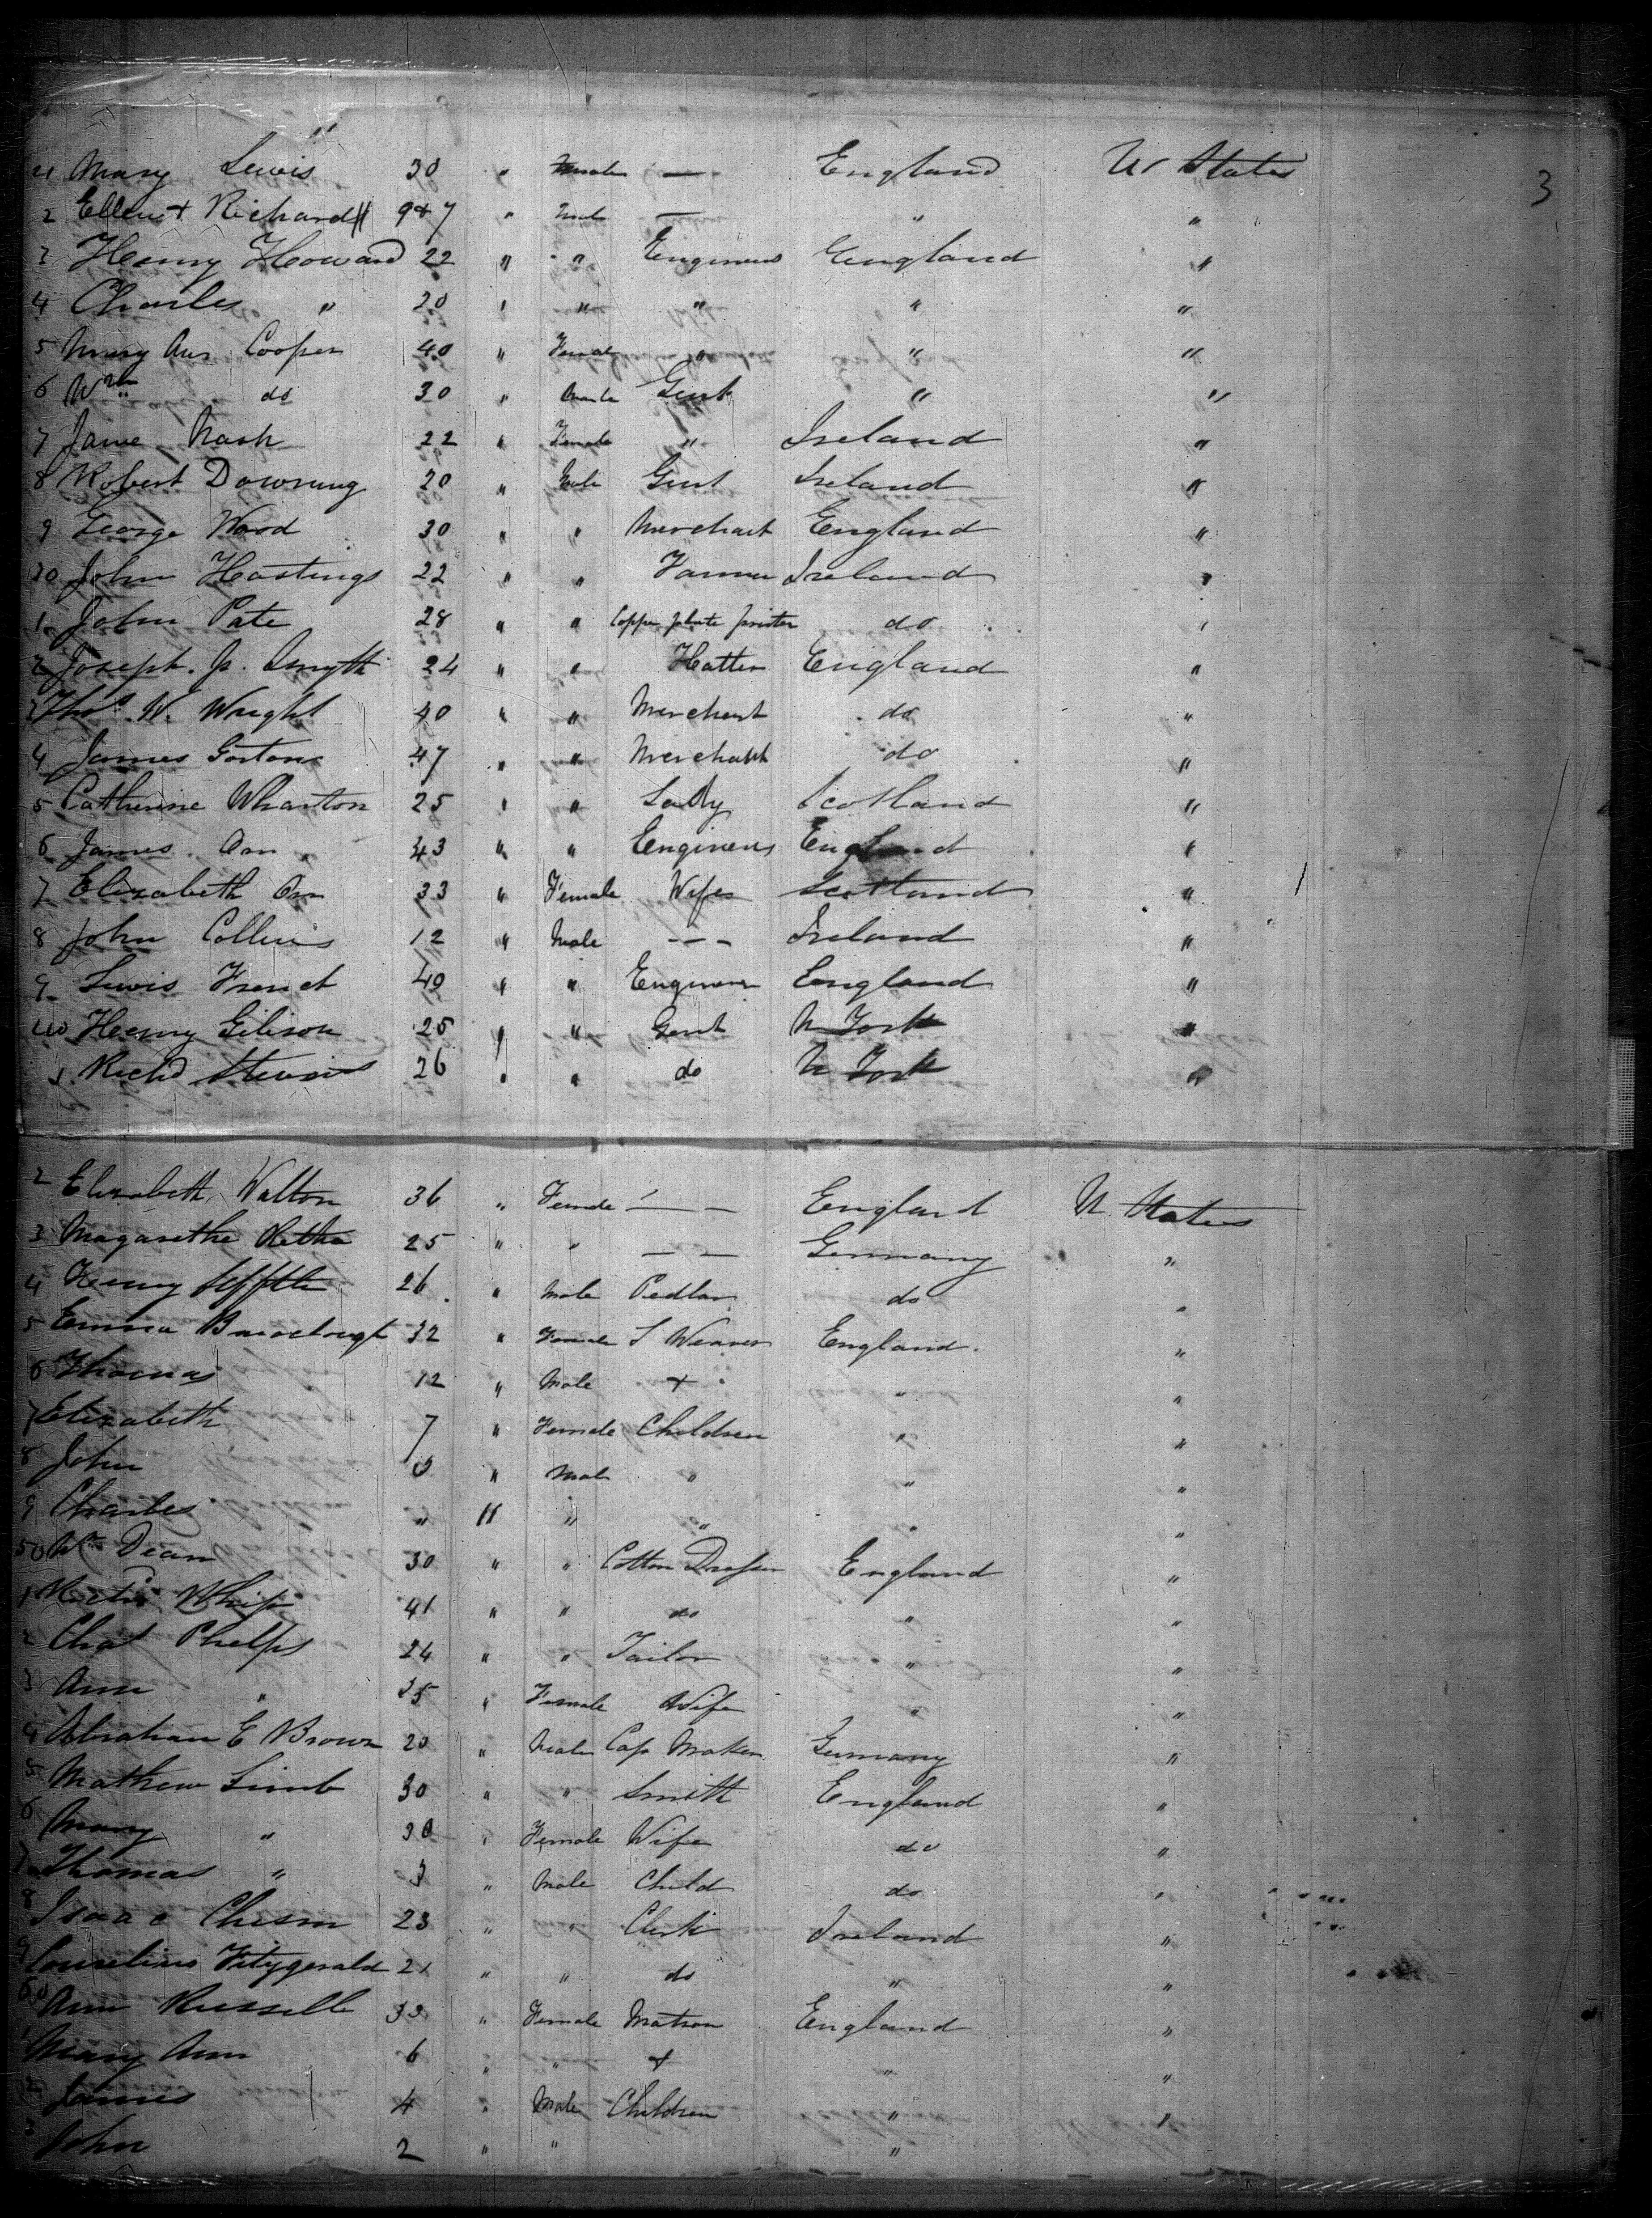 3
21 Mary Lewis 30 " male — England U States
2 Ellen + Richard " 9+7 " Male — " "
3 Henry Howard 22 " " Engineers England "
4 Charles " 20 " " " " "
5 Mary Ann Cooper 40 " Female " " "
6 Wm do 30 " Male Gent " "
7 Jane Nash 22 " Female " Ireland "
8 Robert Downing 20 " Male Gent Ireland "
9 George Wood 30 " " Merchant England "
30 John Hastings 22 " " Farmer Ireland "
1 John Pate 28 " " Copper plate printer do "
2 Joseph Smyth 24 " " Hatter England "
3 Thos W. Wright 40 " " Merchant do "
4 James Gorton 47 " " Merchant do "
5 Catherine Wharton 25 " " Lady Scotland "
6 James Orr 43 " " Engineers England "
7 Elizabeth Orr 33 " Female Wife Scotland "
8 John Collins 12 " Male - - - Ireland "
9 Lewis French 40 " " Engineer England "
40 Henry Gibson 25 " " Gent N York "
1 Richd Stevens 26 " " do N York "
2 Elizabeth Walton 36 " Female — — England U States
3 Magarethe 25 " " — — Germany "
4 Henry 26 " Male Pedlar do "
5 Emma 32 " Female S Weaver England "
6 Thomas 12 " Male + " "
7 Elizabeth 7 " Female Children " "
8 John " Male " " "
9 Charles " 11 " " " "
50 Wm Dean 30 " " Cotton Dresser England "
1 Whip 41 " " do " "
2 Chas Phelps 24 " " Tailor " "
3 Ann " 25 " Female Wife " "
4 Abraham E Brown 20 " Male Cap Maker Germany "
5 Mathew Limb 30 " " Smith England "
6 Mary " 30 " Female Wife do "
7 Thomas " 3 " Male Child do "
8 Isaac Chism 23 " " Clerk Ireland "
9 Cornelius Fitzgerald 21 " " do " "
60 Ann Russell 33 " Female Matron England "
1 Mary Ann 6 " " + " "
2 James 4 " Male Children " "
3 John 2 " " "